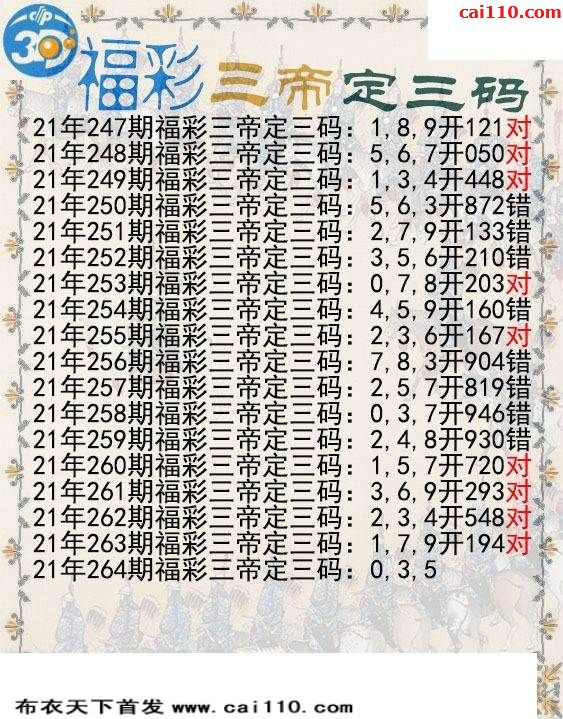 cai110.com
3D
福彩三帝定三码
21年247期福彩三帝定三码：1,8,9开121对
21年248期福彩三帝定三码：5,6,7开050对
21年249期福彩三帝定三码：1,3,4开448对
21年250期福彩三帝定三码：5,6,3开872错
21年251期福彩三帝定三码：2,7,9开133错
21年252期福彩三帝定三码：3,5,6开210错
21年253期福彩三帝定三码：0,7,8开203对
21年254期福彩三帝定三码：4,5,9开160错
21年255期福彩三帝定三码：2,3,6开167对
21年256期福彩三帝定三码：7,8,3开904错
21年257期福彩三帝定三码：2,5,7开819错
21年258期福彩三帝定三码：0,3,7开946错
21年259期福彩三帝定三码：2,4,8开930错
21年260期福彩三帝定三码：1,5,7开720对
21年261期福彩三帝定三码：3,6,9开293对
21年262期福彩三帝定三码：2,3,4开548对
21年263期福彩三帝定三码：1,7,9开194对
21年264期福彩三帝定三码：0,3,5
布衣天下首发 www.cai110.com